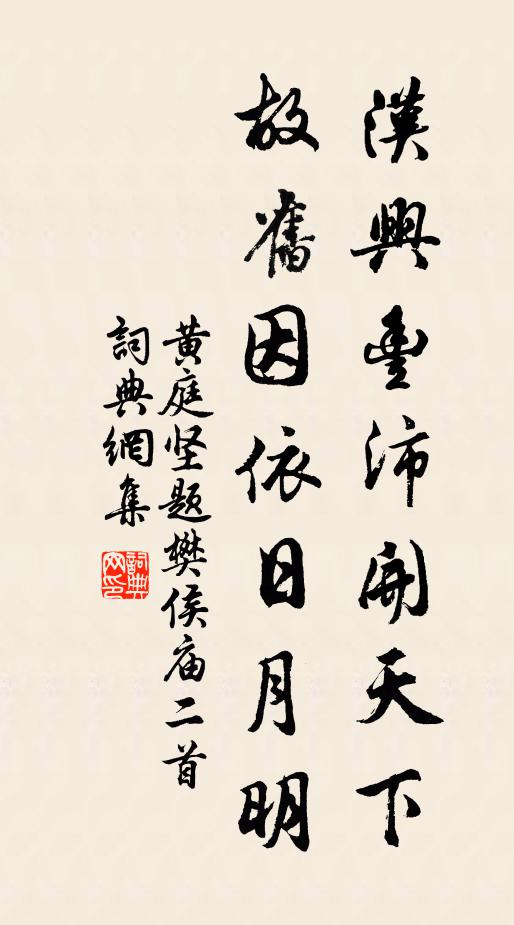 漢興豐沛開天下
故舊因依日月明
黄庭坚題樊侯庙二首
詞典網集
詞典網印